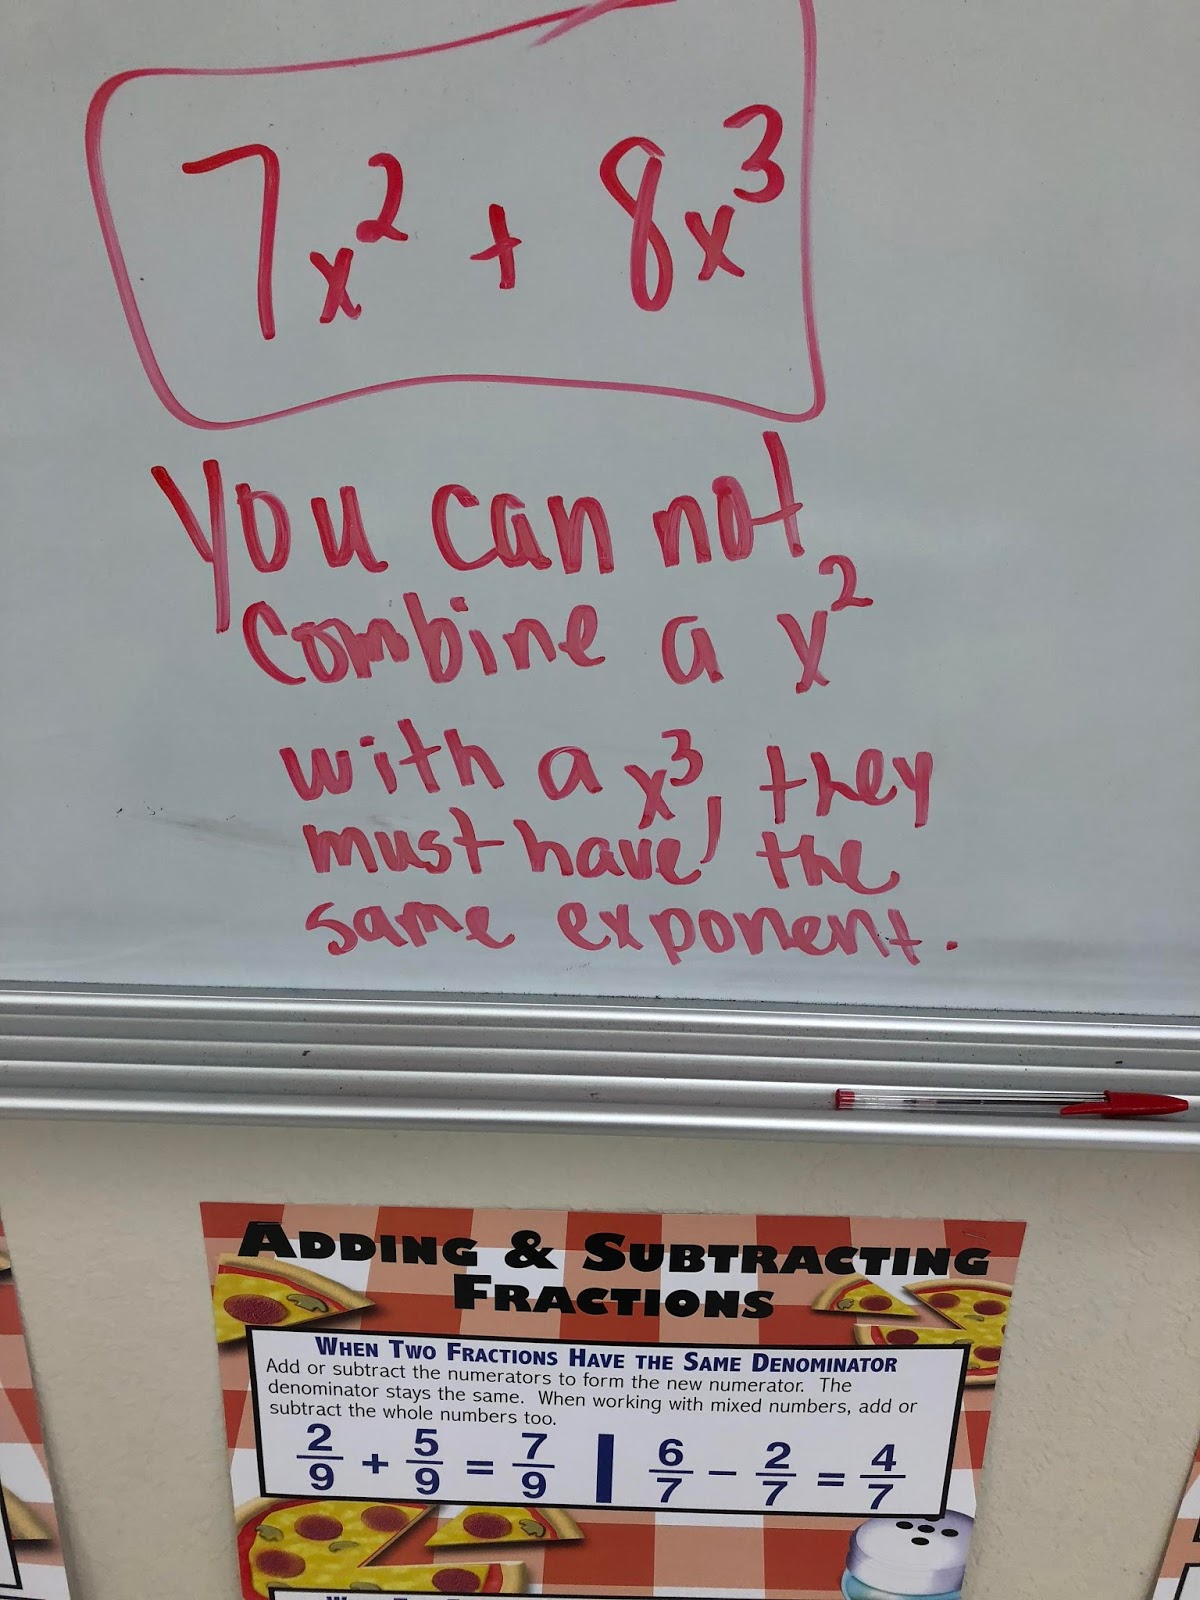 7x² + 8x³
You can not
combine a x²
with a x³, they
must have the
same exponent.
ADDING & SUBTRACTING
FRACTIONS
WHEN TWO FRACTIONS HAVE THE SAME DENOMINATOR
Add or subtract the numerators to form the new numerator. The
denominator stays the same. When working with mixed numbers, add or
subtract the whole numbers too.
2/9 + 5/9 = 7/9 | 6/7 − 2/7 = 4/7